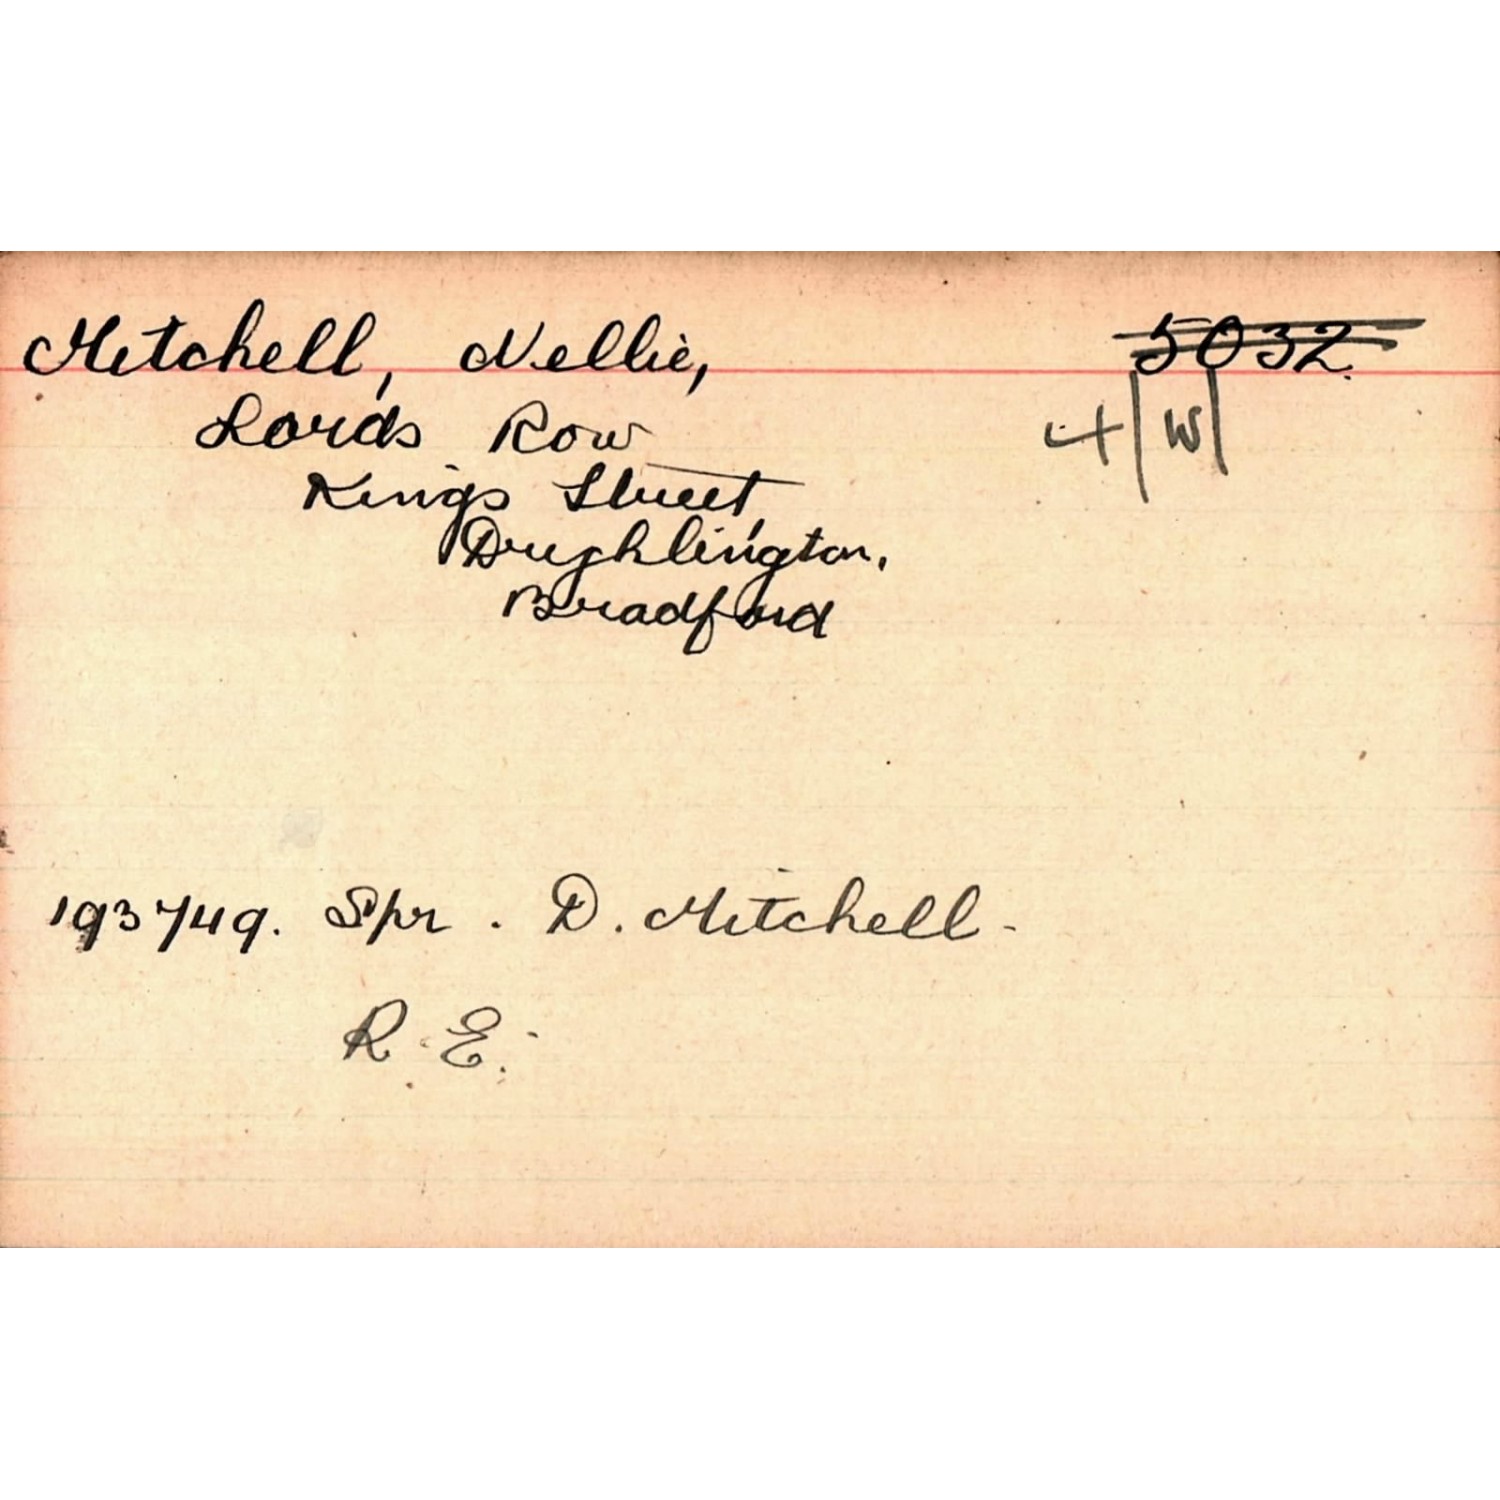 Mitchell, Nellie, 5032.
Lords Row +/W/
Kings Street,
Drighlington,
Bradford
193749. Spr. D. Mitchell.
R.E.